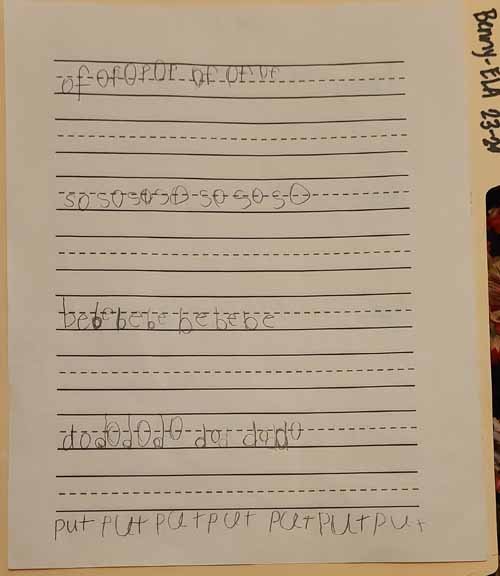 of of of of of of of
so so so so so so so
be be be be be be be
do do do do do do do
put put put put put put put
Benny - ELA 23-24